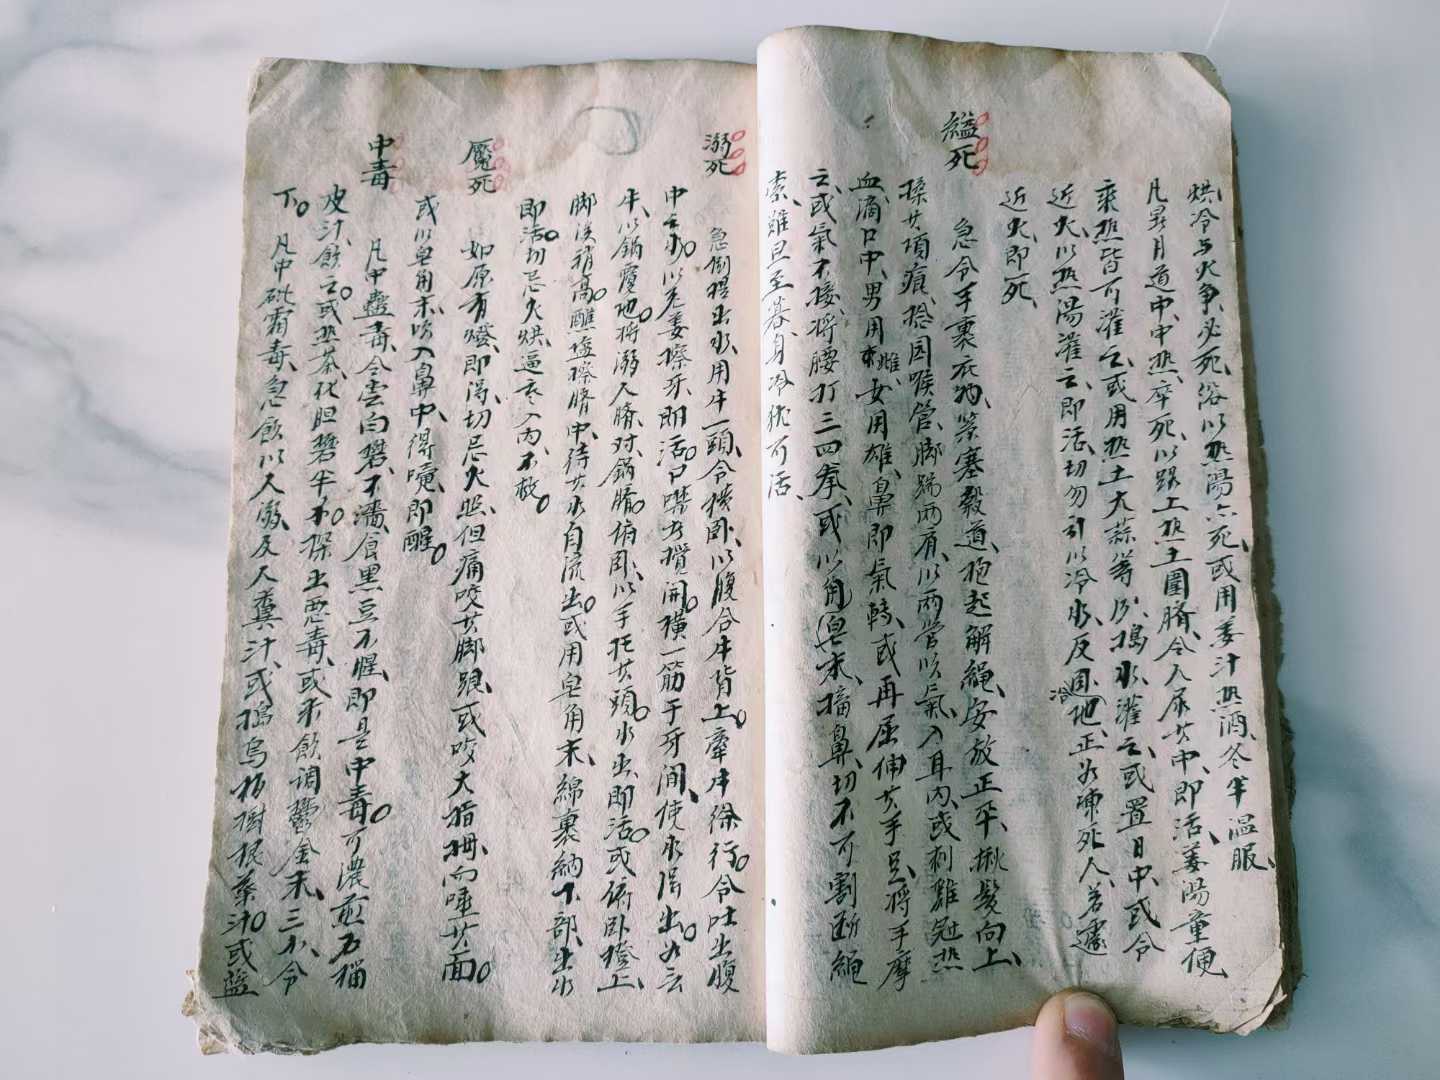 烘冷与火争必死俗以热湯六死或用姜汁热酒冬半温服
凡暑月道中中热卒死以路上热土圍臍令人尿其中即活姜湯童便
乘热皆可灌之或用热土大蒜等分搗水灌之或置日中或令
近火以热湯灌之即活切勿引以冷水及冷地正如凍死人若遽
近火即死
縊死
急令手裹衣物緊塞穀道抱起解繩安放正平揪髮向上
揉其項痕捻圆喉管脚踹两肩以两管吹氣入耳内或刺雞冠热
血滴口中男用雌女用雄鼻即氣轉或再屈伸其手足将手摩
之或氣不接将腰打三四拳或以皂末搐鼻切不可割断繩
索雖旦至暮身冷犹可活
溺死
急倒提出水用牛一頭令横卧以腹合牛背上牽牛徐行令吐出腹
中之水以老姜擦牙即活口噤者撬開横一筋于牙間使水得出如无
牛以鍋覆地将溺人臍对鍋臍俯卧以手托其頭水出即活或俯卧櫈上
脚後稍高醮塩擦臍中待其水自流出或用皂角末綿裹納下部出水
即活切忌火烘逼寒入内不救
魘死
如原有燈即得切忌火照但痛咬其脚跟或咬大指拇而唾其面
或以皂角末吹入鼻中得嚏即醒
中毒
凡中蠱毒令尝白礬不澀食黑豆不腥即是中毒可濃煎石榴
皮汁飲之或热茶化胆礬半分探出恶毒或米飲调鬱金末三分令
下
凡中砒霜毒急飲以人溺及人糞汁或搗烏桕樹根葉汁或藍